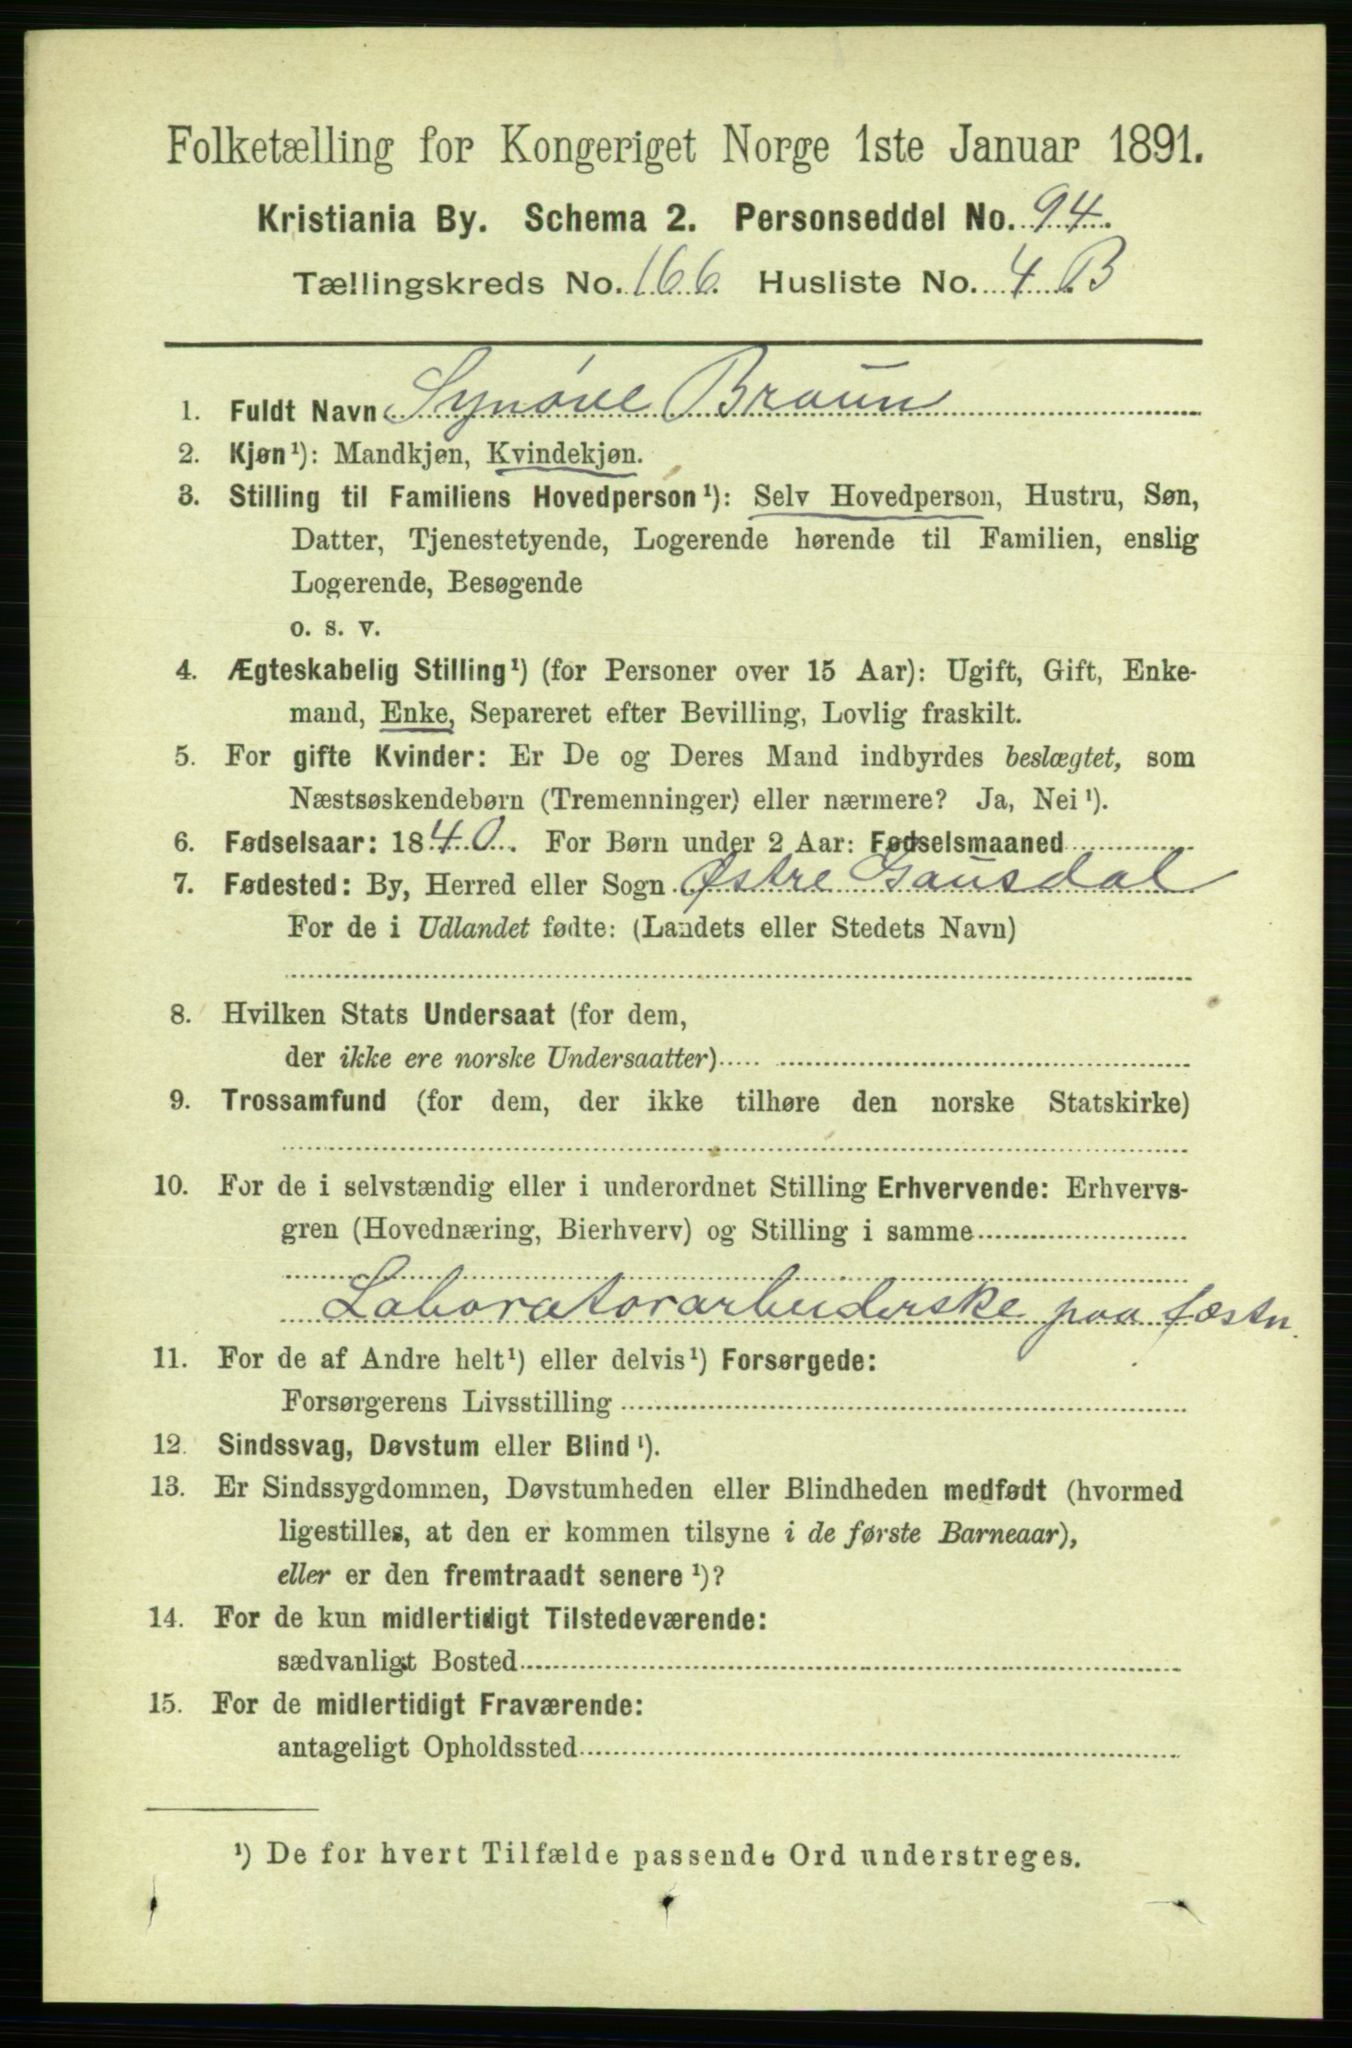 Folketælling for Kongeriget Norge 1ste Januar 1891.
Kristiania By. Schema 2. Personseddel No. 94.
Tællingskreds No. 166. Husliste No. 4 B
1. Fuldt Navn Synøve Braun
2. Kjøn¹): Mandkjøn, Kvindekjøn.
3. Stilling til Familiens Hovedperson¹): Selv Hovedperson, Hustru, Søn,
Datter, Tjenestetyende, Logerende hørende til Familien, enslig
Logerende, Besøgende
o. s. v.
4. Ægteskabelig Stilling¹) (for Personer over 15 Aar): Ugift, Gift, Enke-
mand, Enke, Separeret efter Bevilling, Lovlig fraskilt.
5. For gifte Kvinder: Er De og Deres Mand indbyrdes beslægtet, som
Næstsøskendebørn (Tremenninger) eller nærmere? Ja, Nei¹).
6. Fødselsaar: 1840. For Børn under 2 Aar: Fødselsmaaned
7. Fødested: By, Herred eller Sogn Østre Gausdal
For de i Udlandet fødte: (Landets eller Stedets Navn)
8. Hvilken Stats Undersaat (for dem,
der ikke ere norske Undersaatter)
9. Trossamfund (for dem, der ikke tilhøre den norske Statskirke)
10. For de i selvstændig eller i underordnet Stilling Erhvervende: Erhvervs-
gren (Hovednæring, Bierhverv) og Stilling i samme
Laboratorarbeiderske paa fæstn.
11. For de af Andre helt¹) eller delvis¹) Forsørgede:
Forsørgerens Livsstilling
12. Sindssvag, Døvstum eller Blind¹).
13. Er Sindssygdommen, Døvstumheden eller Blindheden medfødt (hvormed
ligestilles, at den er kommen tilsyne i de første Barneaar),
eller er den fremtraadt senere¹)?
14. For de kun midlertidigt Tilstedeværende:
sædvanligt Bosted
15. For de midlertidigt Fraværende:
antageligt Opholdssted
¹) De for hvert Tilfælde passende Ord understreges.